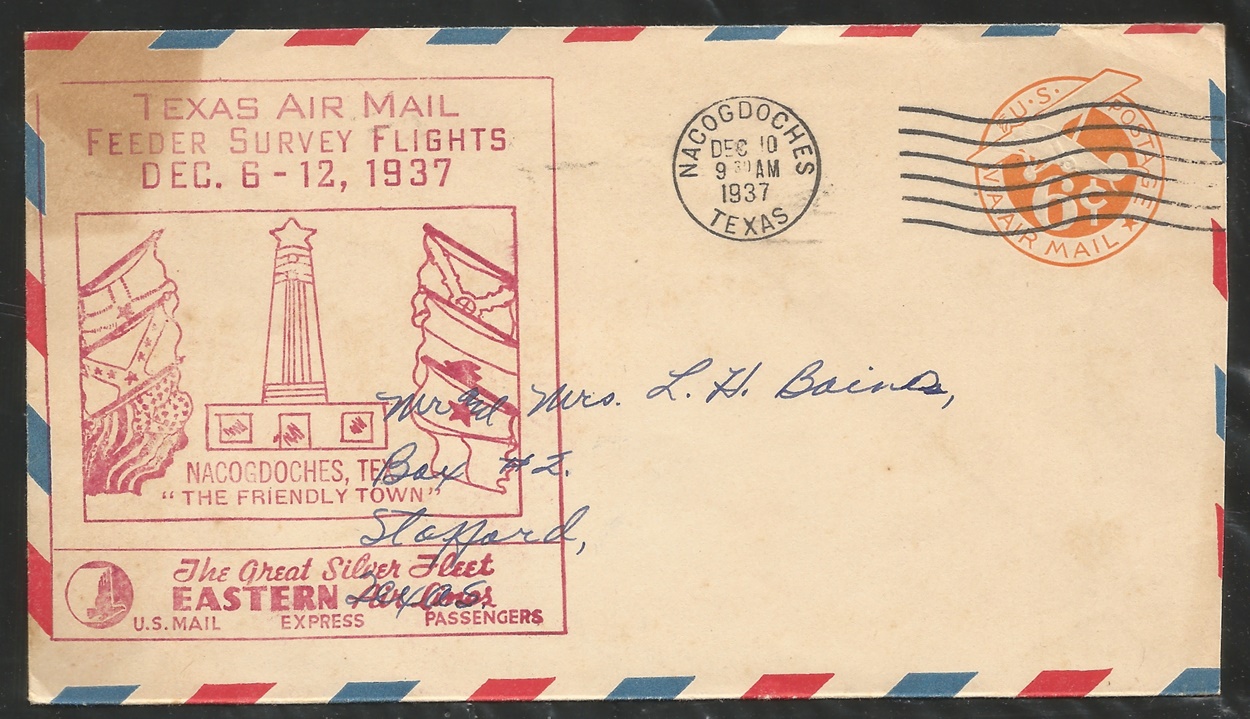 TEXAS AIR MAIL
FEEDER SURVEY FLIGHTS
DEC. 6 - 12, 1937
NACOGDOCHES, TEX
"THE FRIENDLY TOWN"
The Great Silver Fleet
EASTERN Air Lines
U.S. MAIL EXPRESS PASSENGERS
NACOGDOCHES
DEC 10
9 30 AM
1937
TEXAS
U.S. POSTAGE
6¢
VIA AIR MAIL
Mr and Mrs. L. H. Bains,
Box #2.
Stafford,
Texas.